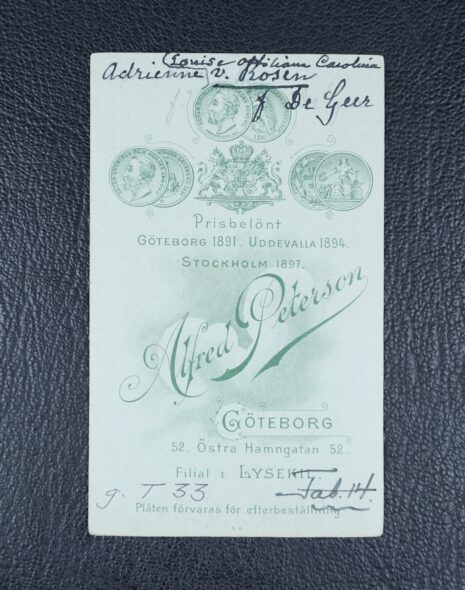 (Louise Ottiliana Carolina
Adrienne v. Rosen
f De Geer
1897
Prisbelönt
GÖTEBORG 1891. UDDEVALLA 1894.
STOCKHOLM 1897.
Alfred Peterson
GÖTEBORG
52. Östra Hamngatan 52.
Filial i LYSEKIL
g. T 33
Tab. 14.
Plåten förvaras för efterbeställning